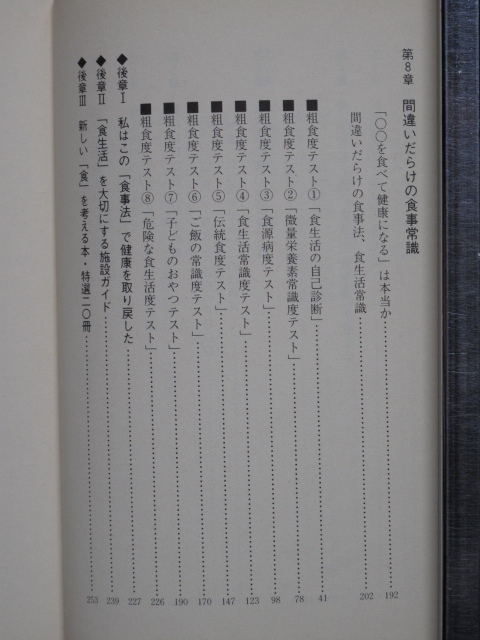 第8章 間違いだらけの食事常識
「〇〇を食べて健康になる」は本当か……192
間違いだらけの食事法、食生活常識……202
■粗食度テスト①「食生活の自己診断」……41
■粗食度テスト②「微量栄養素常識度テスト」……78
■粗食度テスト③「食源病度テスト」……98
■粗食度テスト④「食生活常識度テスト」……123
■粗食度テスト⑤「伝統食度テスト」……147
■粗食度テスト⑥「ご飯の常識度テスト」……170
■粗食度テスト⑦「子どものおやつテスト」……190
■粗食度テスト⑧「危険な食生活度テスト」……226
◆後章Ⅰ 私はこの「食事法」で健康を取り戻した……227
◆後章Ⅱ 「食生活」を大切にする施設ガイド……239
◆後章Ⅲ 新しい「食」を考える本・特選二〇冊……253